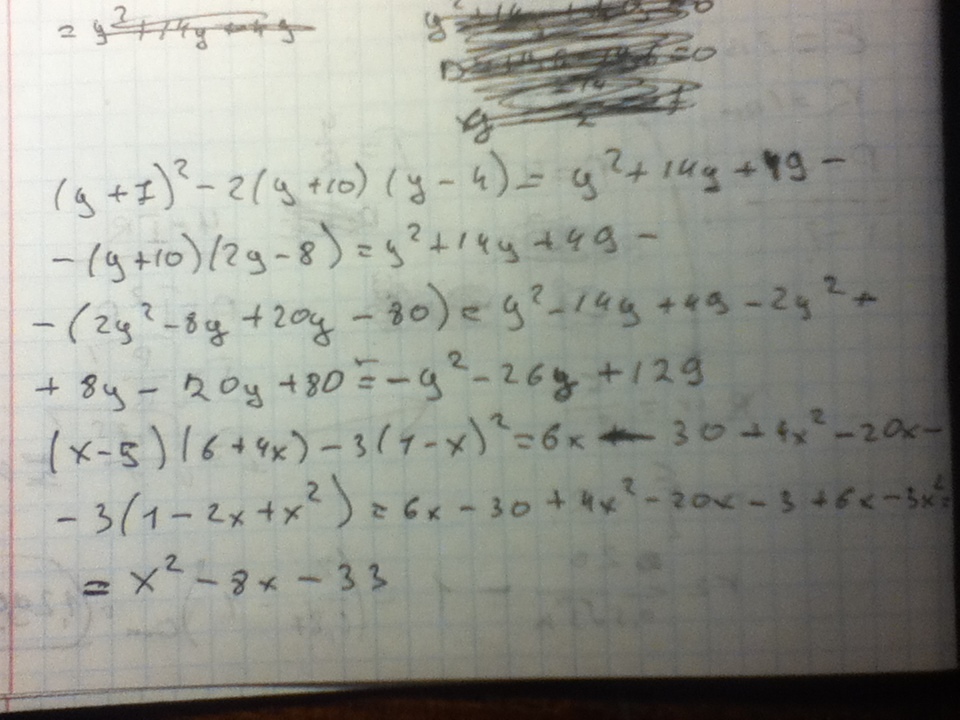 = y² + 14y + 49
(y + 7)² - 2(y + 10)(y - 4) = y² + 14y + 49 -
- (y+10)(2y-8) = y² + 14y + 49 -
- (2y² - 8y + 20y - 80) = y² - 14y + 49 - 2y² +
+ 8y - 20y + 80 = - y² - 26y + 129
(x-5)(6+4x) - 3(1-x)² = 6x - 30 + 4x² - 20x -
- 3(1 - 2x + x²) = 6x - 30 + 4x² - 20x - 3 + 6x - 3x² =
= x² - 8x - 33